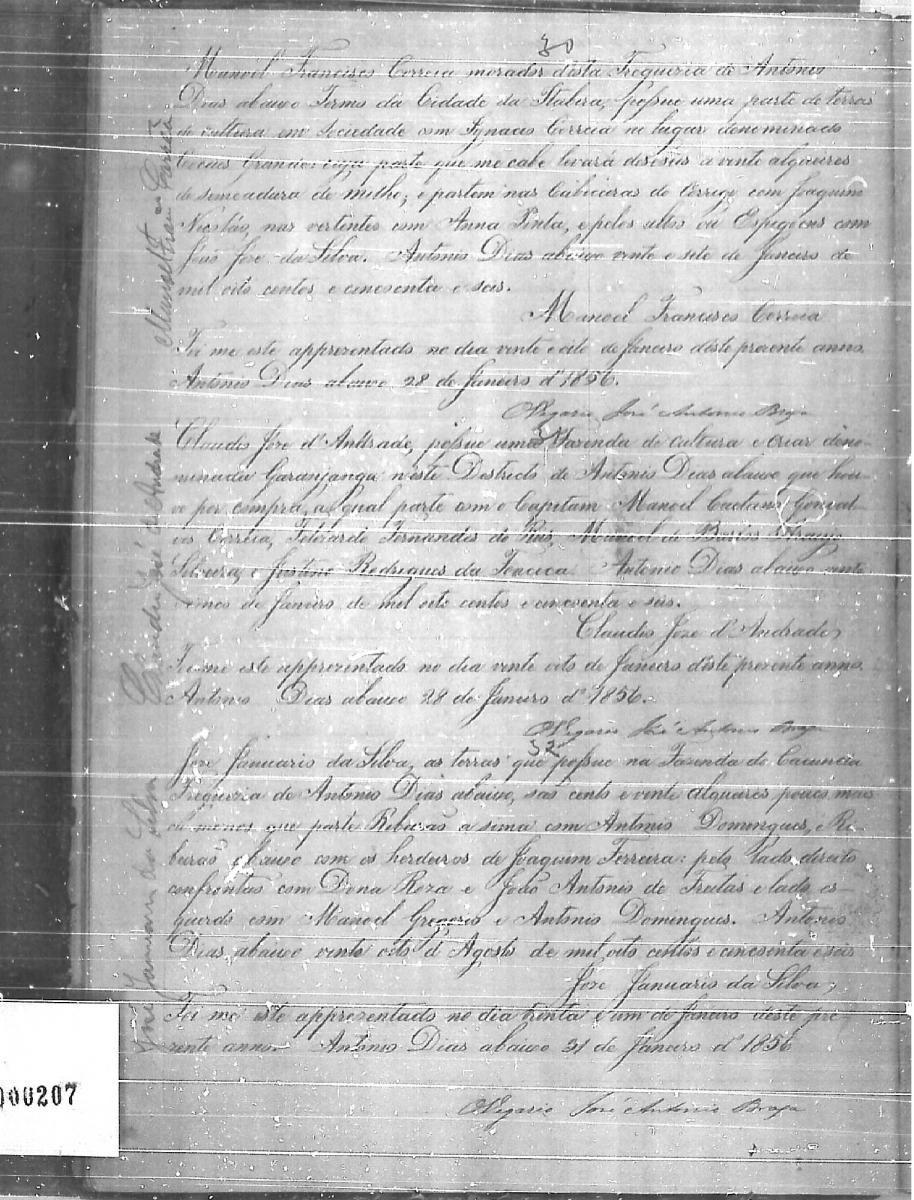 30
Manoel Francisco Correia morador désta Freguezia de Antonio
Dias abaixo Termo da Cidade da Itabira, possue uma parte de terras
de cultura em sociedade com Ignacio Correia no lugar denominado
Cocaes Grande: cuja parte que me cabe levará deseseis a vinte alqueires
de semeadura de milho, e partem nas Cabiceiras do Corrigo com Joaquim
Nicoláo, nas vertentes com Anna Pinta, e pelos altos ou Espigoens com
João Joze da Silva. Antonio Dias abaixo vinte e sete de Janeiro de
mil oito centos e cincoenta e seis.
Manoel Francisco Correia
Foi me este apprezentado no dia vinte e oito de Janeiro déste prezente anno.
Antonio Dias abaixo 28 de Janeiro d'1856.
O Vigario José Antonio Braga
31
Claudio Joze d'Andrade, possue uma Fazenda de cultura e criar deno-
minada Garanjanga néste Districto de Antonio Dias abaixo que hou-
ve por compra, a qual parte com o Capitam Manoel Caetano Gonsal-
ves Correia, Felizardo Fernandes do Reis, Manoel de Barros Araujo
Silveira, e Justino Rodrigues da Fonceca. Antonio Dias abaixo vinte
e cinco de Janeiro de mil oito centos e cincoenta e seis.
Claudio Joze d'Andrade,
Foi me este apprezentado no dia vinte oito de Janeiro déste prezente anno.
Antonio Dias abaixo 28 de Janeiro d'1856.
O Vigario José Antonio Braga
32
Joze Januario da Silva, as terras que possue na Fazenda do
Freguezia de Antonio Dias abaixo, são cento e vinte alqueires pouco mais
ou menos que parte Ribeirão a sima com Antonio Domingues, Ri-
beirão abaixo com os herdeiros de Joaquim Ferreira: pelo lado direito
confrontão com Dona Roza e João Antonio de Freitas e lado es-
querdo com Manoel Gregorio e Antonio Domingues. Antonio
Dias abaixo vinte oito d'Agosto de mil oito centos e cincoenta e seis
Joze Januario da Silva,
Foi me este apprezentado no dia trinta e um de Janeiro déste pre-
zente anno. Antonio Dias abaixo 31 de Janeiro d'1856
O Vigario José Antonio Braga
Manoel Fran.co Correia
Claudio José d'Andrade
José Januario da Silva
000207